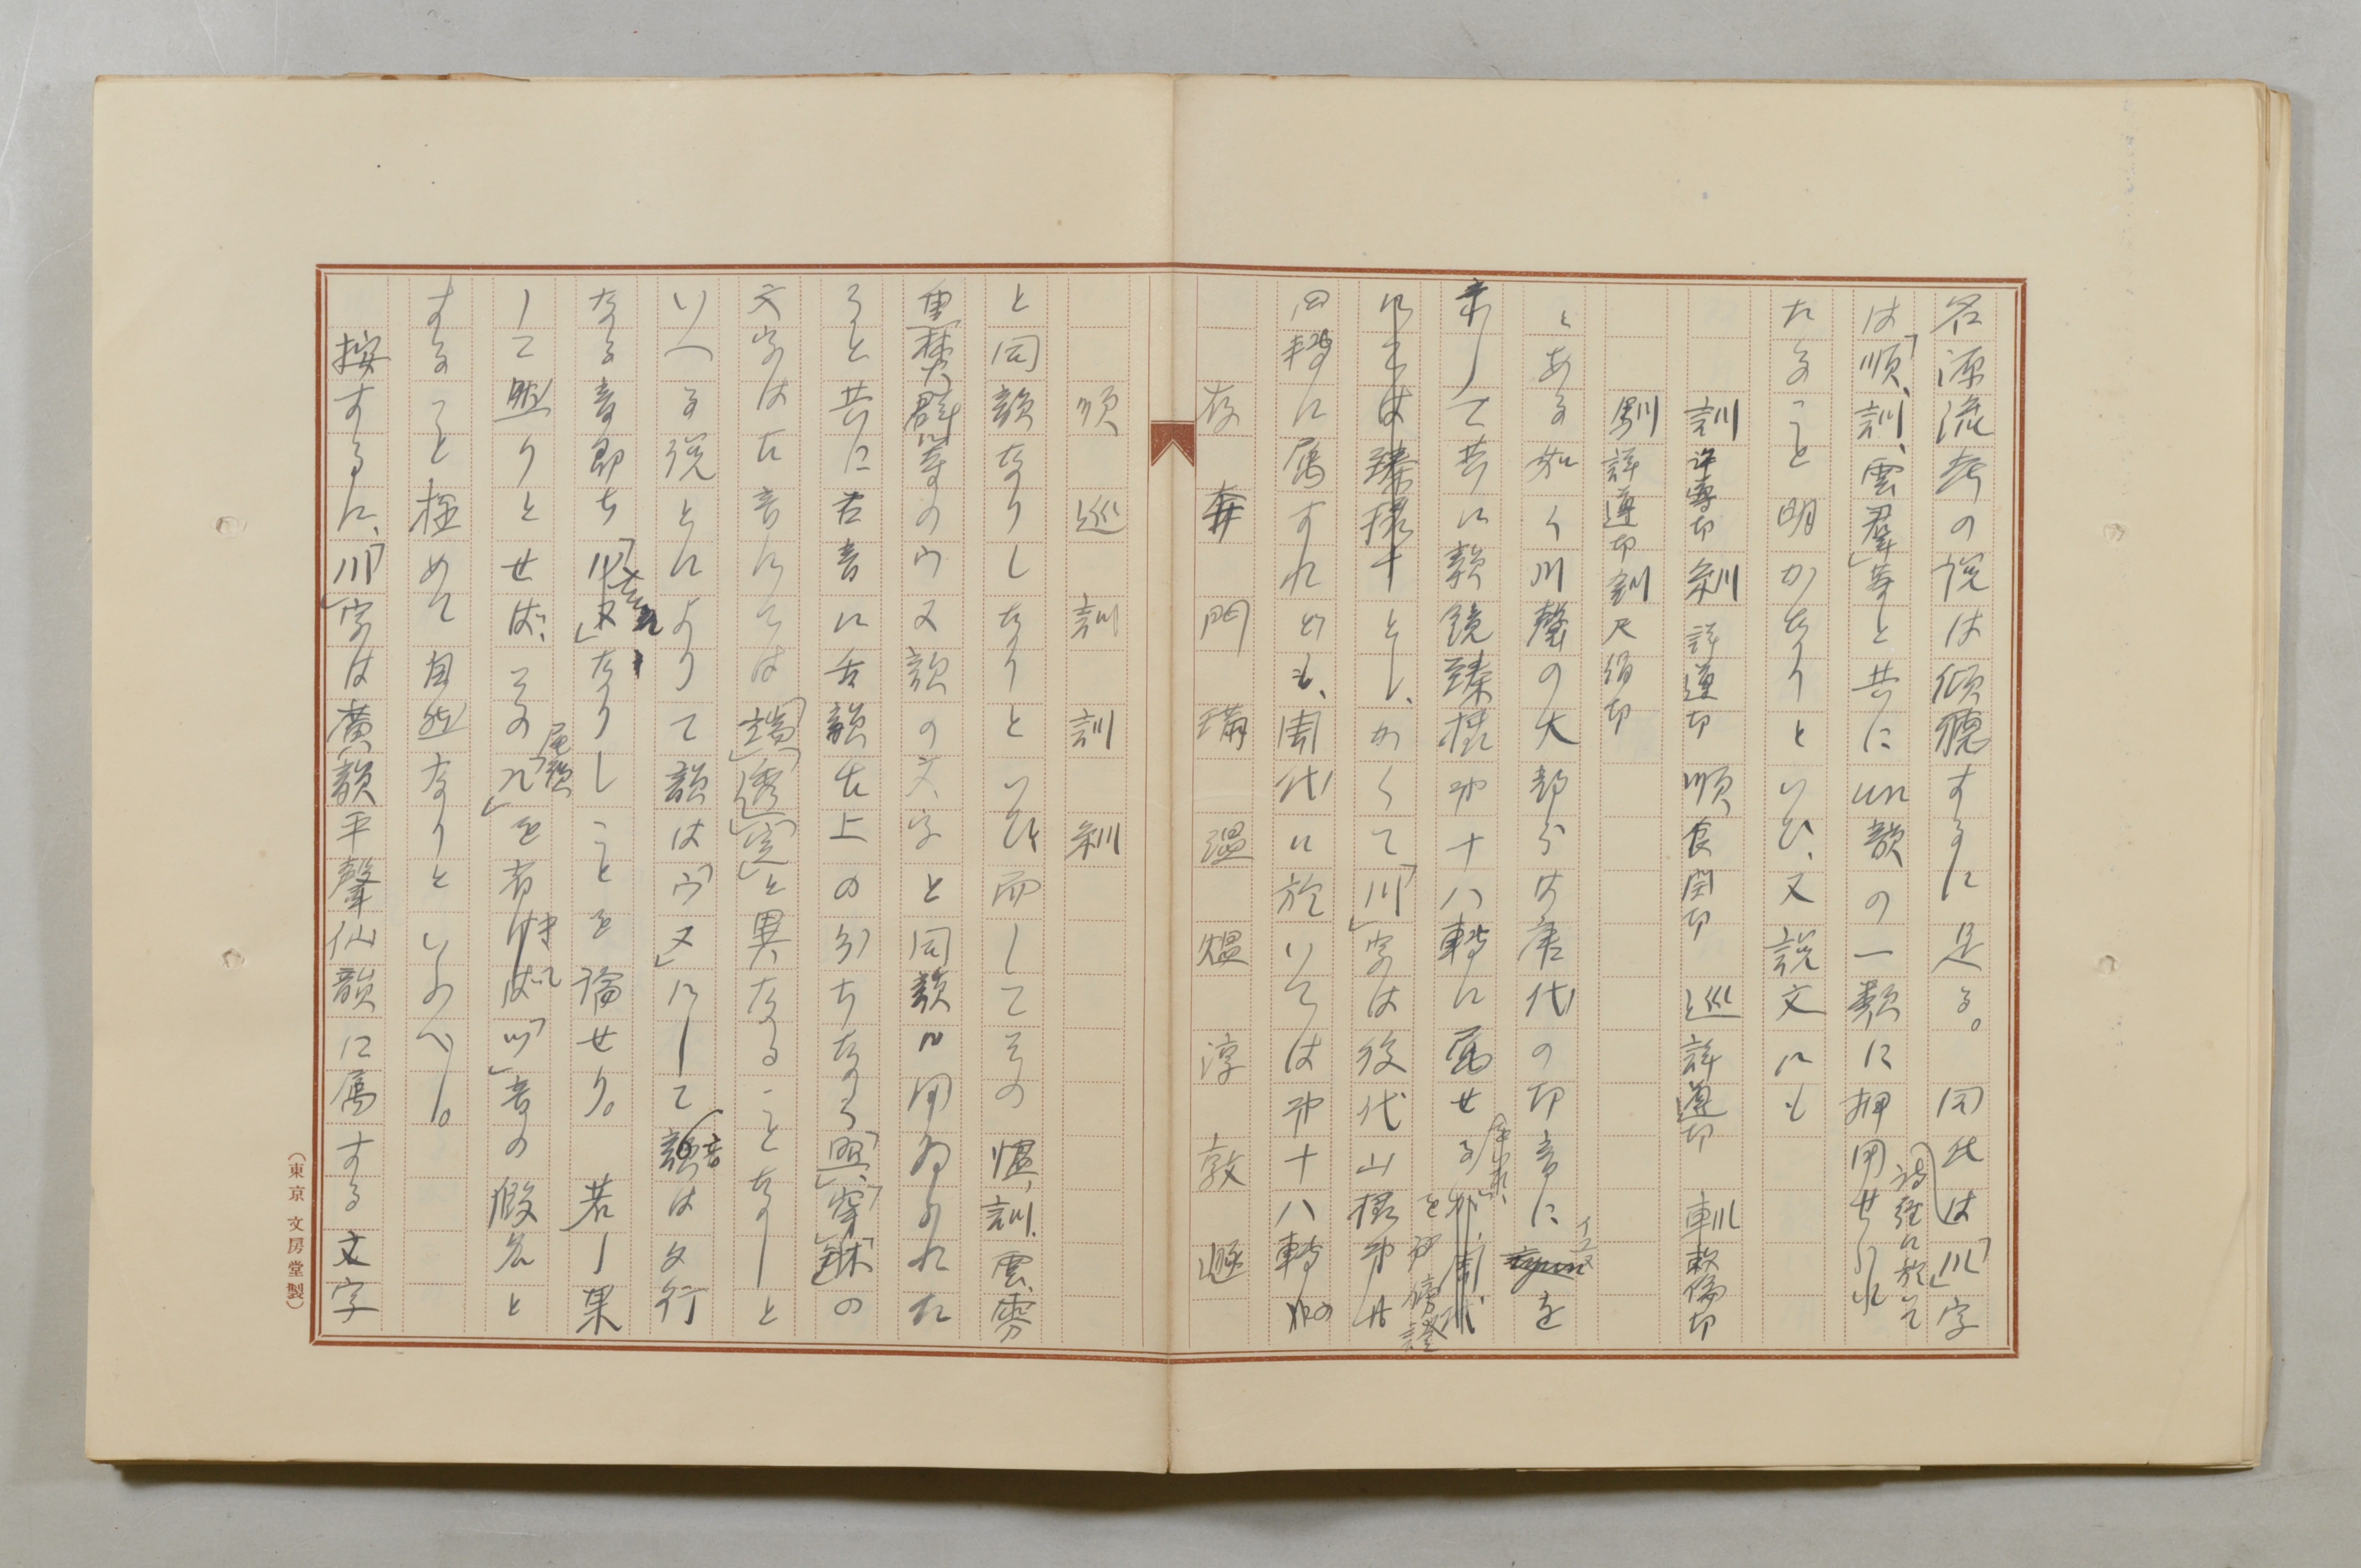 名源流考の説は傾聴するに足る。同氏は「川」字
は「順、訓、雲、群」等と共にun韻の一類に押用せられ
詩経に於て
たること明かなりといひ、又説文にも
訓 許専切 紃 詳遵切 順 食閏切 巡 詳遵切 軐 敕倫切
馴 詳遵切 釧 尺絹切
とある如く川聲の大部分は唐代の切音に
イユヌ
を
来して共に韻鏡臻攝第十八轉に属せる
を
傍證
にては臻攝十とし、かくて「川」字は後代山攝第廿
四轉に属すれども、周代に於いては第十八轉の
存 奔 門 璊 温 煴 淳 敦 遯
順 巡 訓 訓 紃
と同韻なりしなりといひ而してその煴、訓、雲、雰
熏、焚、群等のウヌ韻の文字と同韻に用ゐられた
ると共に古音に古韻古上の分ちなる「照」「穿」「牀」の
文字は古音にては「端」「透」「定」と異なることなしと
いへる説とによりて韻は「ウヌ」にして
音
は夕行
なる音即ち
なりしことを論せり。若し果
して然りとせば、その
尾韻
「ん」を省
きて
「ツ」音の假名と
すること極めて自然なりといふべし。
按するに、「川」字は廣韻平聲仙韻に属する文字
(東京 文房堂製)